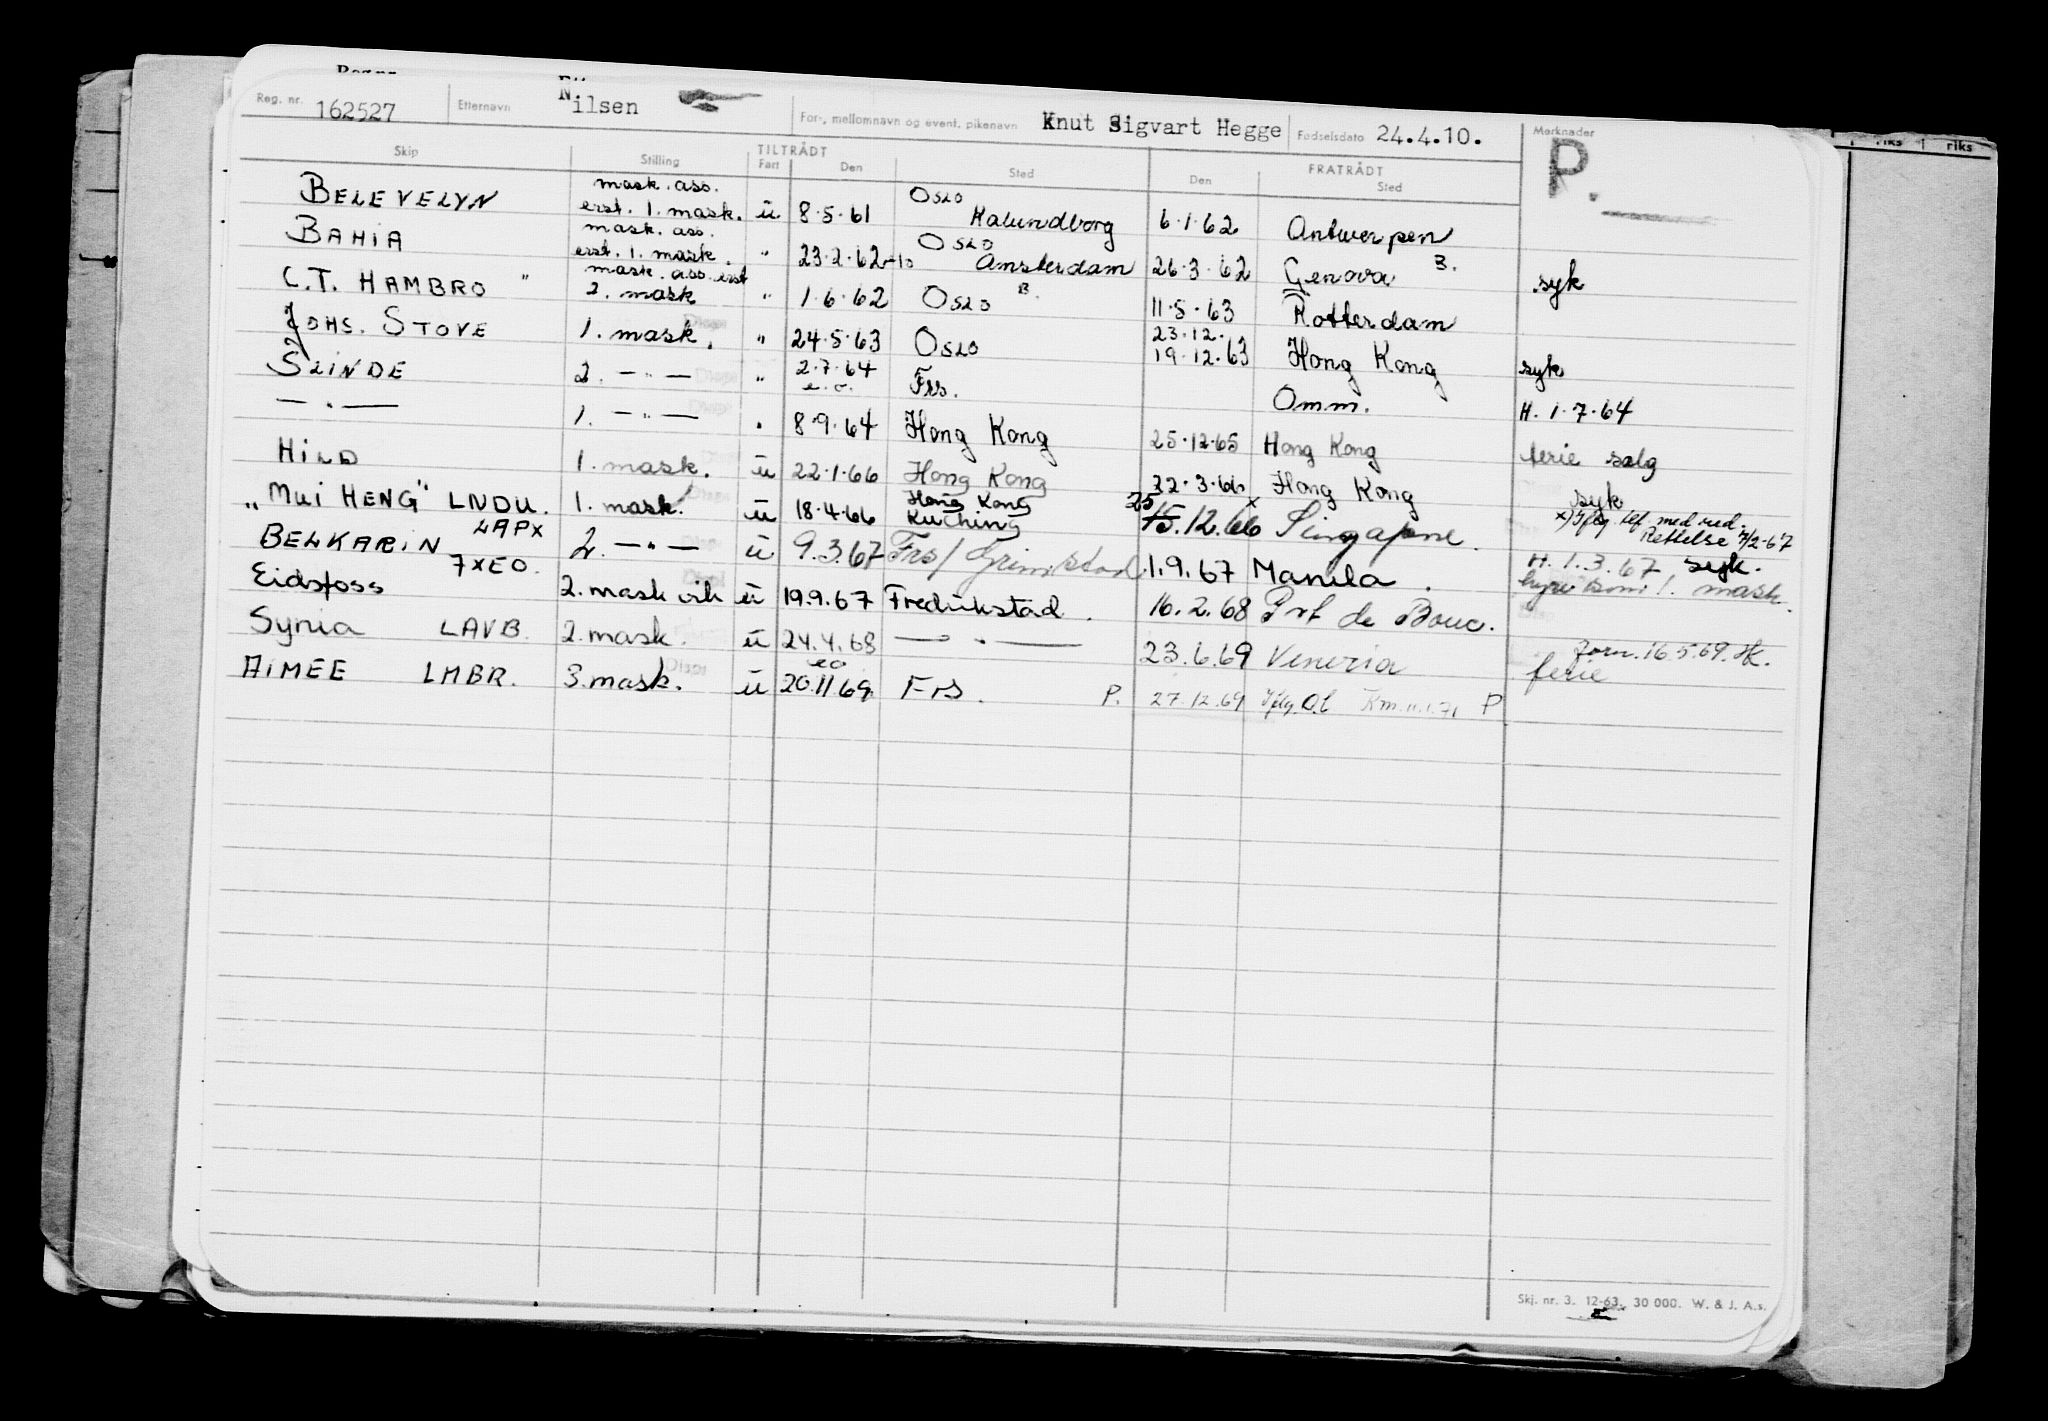 Reg. nr. 162527 Etternavn Nilsen For-, mellomnavn og event. pikenavn Knut Sigvart Hegge Fødselsdato 24.4.10. Merknader
P.
riks riks
Skip Stilling TILTRÅDT Fart Den Sted FRATRÅDT Den Sted
BELEVELYN mask. ass. erst. 1. mask. ü 8.5.61 OSLO Kalundborg 6.1.62 Antwerpen
BAHIA mask. ass. erst. 1. mask. " 23.2.62 OSLO Amsterdam 26.3.62 Genova B. syk
C.T. HAMBRO " mask. ass. erst 2. mask " 1.6.62 OSLO B. 11.5.63 Rotterdam
JOHS. STOVE 1. mask. " 24.5.63 OSLO 23.12. 19.12.63 Hong Kong syk
SLINDE 2. — " — " 2.7.64 e.o. Frs. Omm. H. 1.7.64
— " — 1. — " — " 8.9.64 Hong Kong 25.12.65 Hong Kong ferie salg
HILD 1. mask. ü 22.1.66 Hong Kong 22.3.66 Hong Kong syk
"MUI HENG" LNDU. 1. mask. ü 18.4.66 Hong Kong Kuching 25 15.12.66 x Singapore. x) Iflg tlf. med red. Rettelse 7/2-67
BELKARIN LAPX 7XEO. 2. — " — ü 9.3.67 Frs/ Grimstad 1.9.67 Manila. H. 1.3.67 syk. hyre som 1. mask.
Eidsfoss 2. mask vik ü 19.9.67 Fredrikstad. 16.2.68 Port de Bouc.
Syria LAVB. 2. mask. ü 24.4.68 — " — 23.6.69 Venezia forn. 16.5.69. ferie
AIMEE LMBR. 3. mask. ü eo 20.11.69. Frs. P. 27.12.69 Iflg. O.l Km. 11.1.71 P
Skj. nr. 3. 12-63. 30 000. W. & J. A.s.